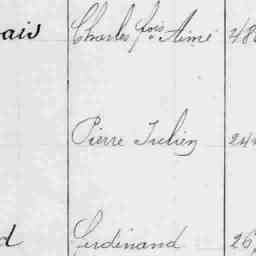 ais Charles fois Aimé 48
Pierre Julien 24
d Ferdinand 26